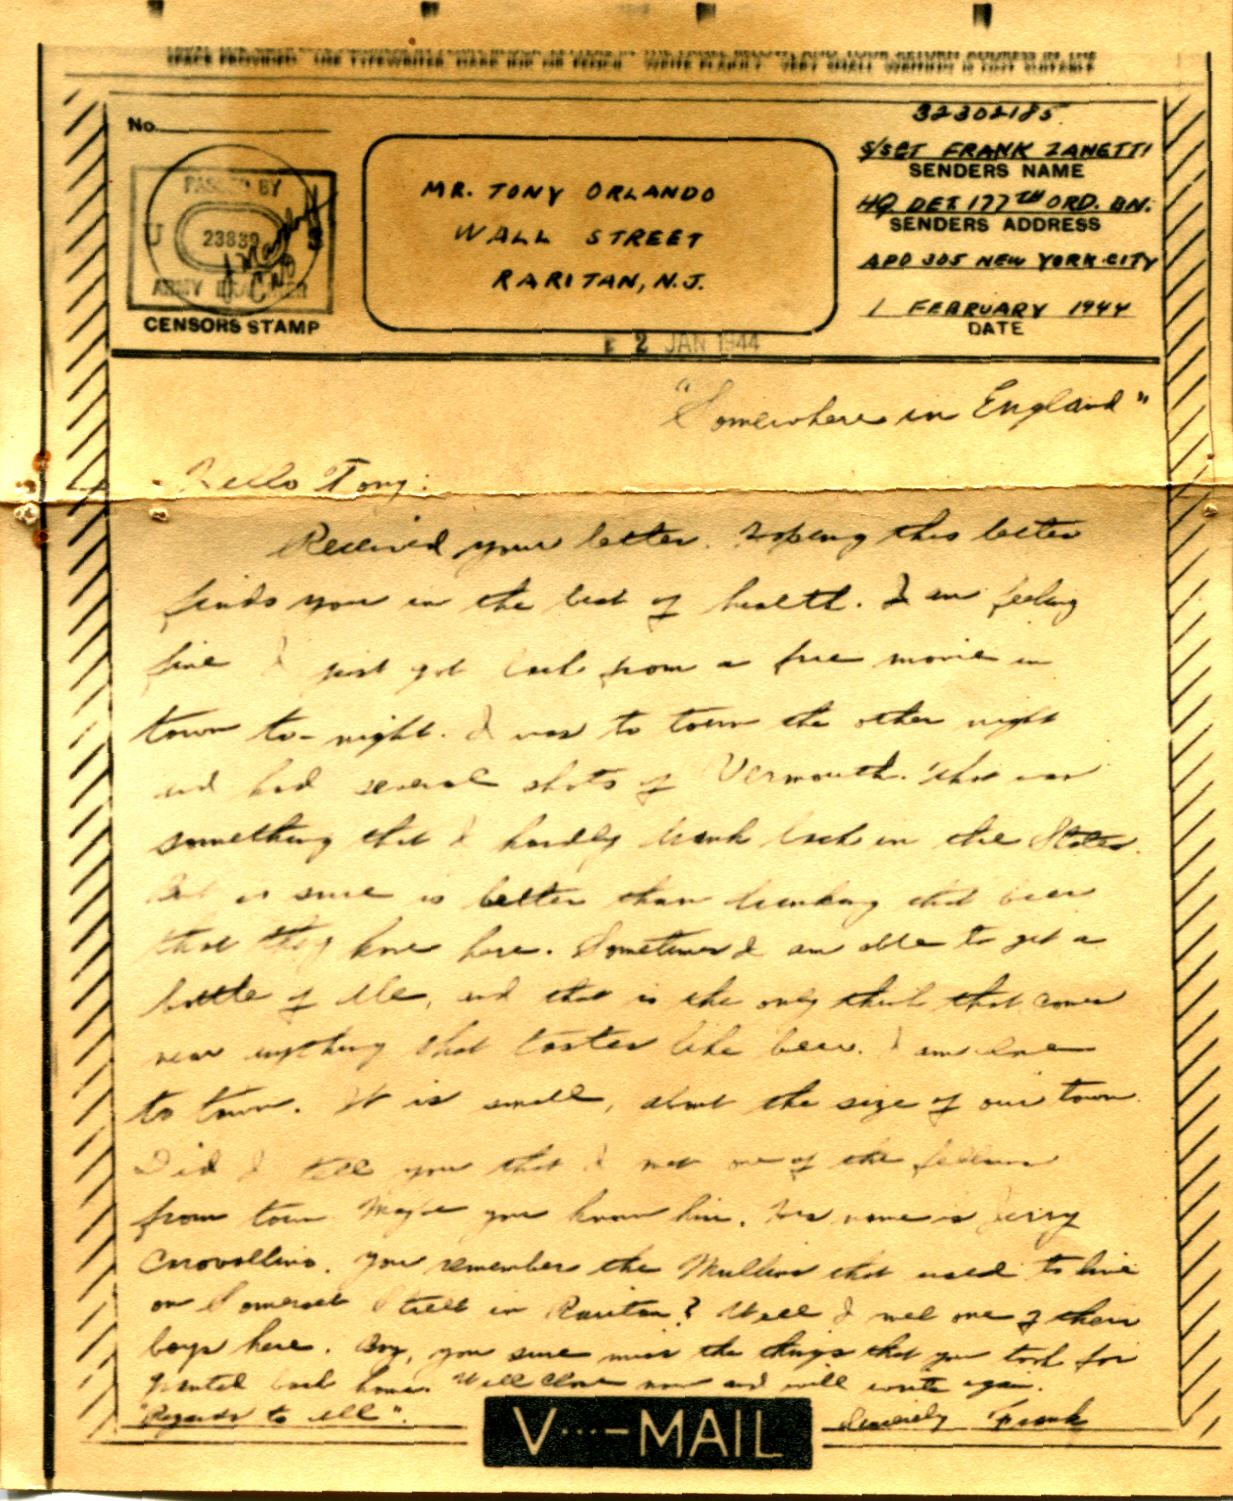 No.
PASSED BY
U S
23839
ARMY EXAMINER
CENSORS STAMP
MR. TONY ORLANDO
WALL STREET
RARITAN, N.J.
32302185
S/SGT FRANK ZANETTI
SENDERS NAME
HQ DET 177TH ORD. BN.
SENDERS ADDRESS
APO 305 NEW YORK CITY
1 FEBRUARY 1944
DATE
2 JAN 1944
"Somewhere in England"
Hello Tony:
Received your letter. Hoping this letter
finds you in the best of health. I am feeling
fine I just got back from a free movie in
town to-night. I was to town the other night
and had several shots of Vermouth. This was
something that I hardly drank back in the States.
But it sure is better than drinking that beer
that they have here. Sometimes I am able to get a
bottle of Ale, and that is the only think that comes
near anything that tastes like beer. I am
to town. It is small, about the size of our town.
Did I tell you that I met one of the fellows
from town Maybe you know him. His name is Jerry
Carovallino. You remember the Mullins that used to live
on Somerset Street in Raritan? Well I met one of their
boys here. Boy, you sure miss the things that you took for
granted back home. Will close now and will write again.
"Regards to all".
Sincerely Frank
V...-MAIL